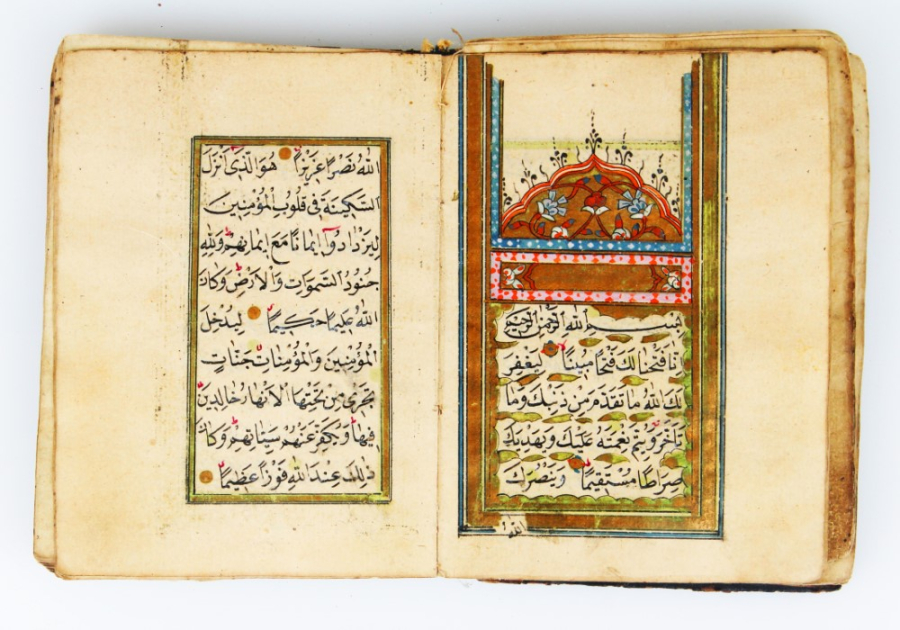 بِسْمِ اللهِ الرَّحْمٰنِ الرَّحِيمِ
اِنَّا فَتَحْنَا لَكَ فَتْحًا مُبِينًا لِيَغْفِرَ
لَكَ اللهُ مَا تَقَدَّمَ مِنْ ذَنْبِكَ وَمَا
تَاَخَّرَ وَيُتِمَّ نِعْمَتَهُ عَلَيْكَ وَيَهْدِيَكَ
صِرَاطًا مُسْتَقِيمًا وَيَنْصُرَكَ
الله
اللهُ نَصْرًا عَزِيزًا هُوَ الَّذِى اَنْزَلَ
السَّكِينَةَ فِى قُلُوبِ الْمُؤْمِنِينَ
لِيَزْدَادُوٓا اِيمَانًا مَعَ اِيمَانِهِمْ وَلِلّٰهِ
جُنُودُ السَّمَوَاتِ وَالْاَرْضِ وَكَانَ
اللهُ عَلِيمًا حَكِيمًا لِيُدْخِلَ
الْمُؤْمِنِينَ وَالْمُؤْمِنَاتِ جَنَّاتٍ
تَجْرِى مِنْ تَحْتِهَا الْاَنْهَارُ خَالِدِينَ
فِيهَا وَيُكَفِّرَ عَنْهُمْ سَيِّاٰتِهِمْ وَكَانَ
ذٰلِكَ عِنْدَ اللهِ فَوْزًا عَظِيمًا